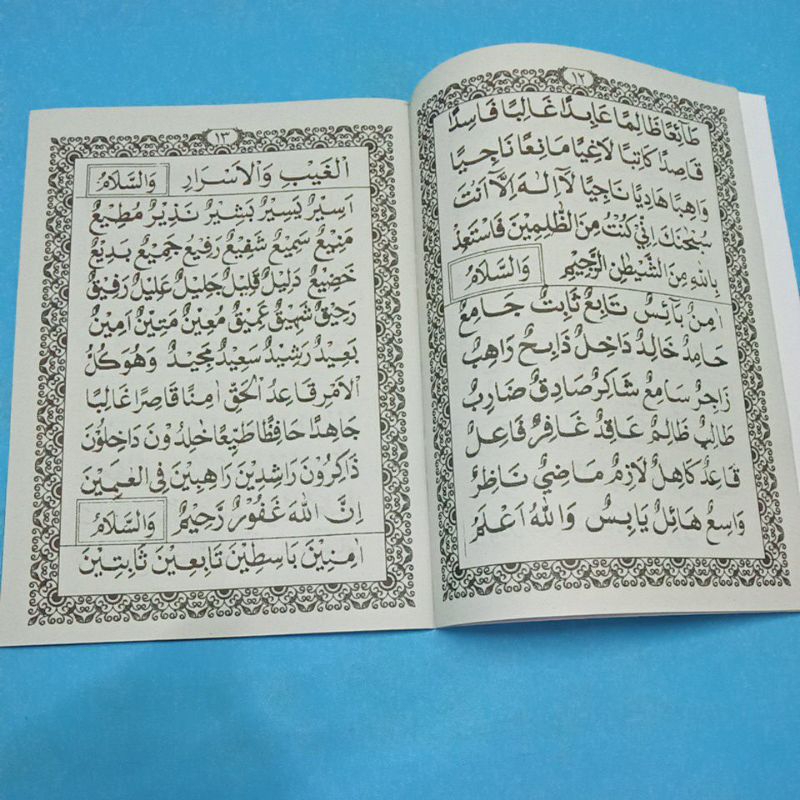 ١٢
طَائِعًا ظَالِمًا عَابِدًا غَالِبًا فَاسِدًا
قَاصِدًا كَاتِبًا لَاغِيًا مَانِعًا نَاجِيًا
وَاهِبًا هَادِيًا نَاجِيًا لَآ اِلٰهَ اِلَّآ اَنْتَ
سُبْحٰنَكَ اِنِّيْ كُنْتُ مِنَ الظّٰلِمِيْنَ فَاسْتَعِذْ
بِاللّٰهِ مِنَ الشَّيْطٰنِ الرَّجِيْمِ وَالسَّلَامُ
اٰمِنٌ بَآئِسٌ تَابِعٌ ثَابِتٌ جَامِعٌ
حَامِدٌ خَالِدٌ دَاخِلٌ ذَابِحٌ رَاهِبٌ
زَاجِرٌ سَامِعٌ شَاكِرٌ صَادِقٌ ضَارِبٌ
طَالِبٌ ظَالِمٌ عَاقِدٌ غَافِرٌ فَاعِلٌ
قَاعِدٌ كَاهِلٌ لَازِمٌ مَاضِيٌ نَاظِرٌ
وَاسِعٌ هَائِلٌ يَابِسٌ وَاللّٰهُ اَعْلَمُ
١٣
الْغَيْبِ وَالْاَسْرَارِ وَالسَّلَامُ
اَسِيْرٌ بَسِيْرٌ بَشِيْرٌ نَذِيْرٌ مُطِيْعٌ
مَنِيْعٌ سَمِيْعٌ شَفِيْعٌ رَفِيْعٌ جَمِيْعٌ بَدِيْعٌ
خَضِيْعٌ دَلِيْلٌ قَلِيْلٌ جَلِيْلٌ عَلِيْلٌ رَفِيْقٌ
رَحِيْقٌ شَهِيْقٌ عَمِيْقٌ مُعِيْنٌ مَتِيْنٌ اَمِيْنٌ
بَعِيْدٌ رَشِيْدٌ سَعِيْدٌ مَجِيْدٌ وَهُوَ كُلُّ
الْاَمْرِ قَاعِدُ الْحَقِّ اٰمِنًا قَاصِرًا غَالِبًا
جَاهِدًا حَافِظًا طَيِّعًا خٰلِدُوْنَ دَاخِلُوْنَ
ذَاكِرُوْنَ رَاشِدِيْنَ رَاهِبِيْنَ فِى الْعٰلَمِيْنَ
اِنَّ اللّٰهَ غَفُوْرٌ رَّحِيْمٌ وَالسَّلَامُ
اٰمِنِيْنَ بَاسِطِيْنَ تَابِعِيْنَ ثَابِتِيْنَ